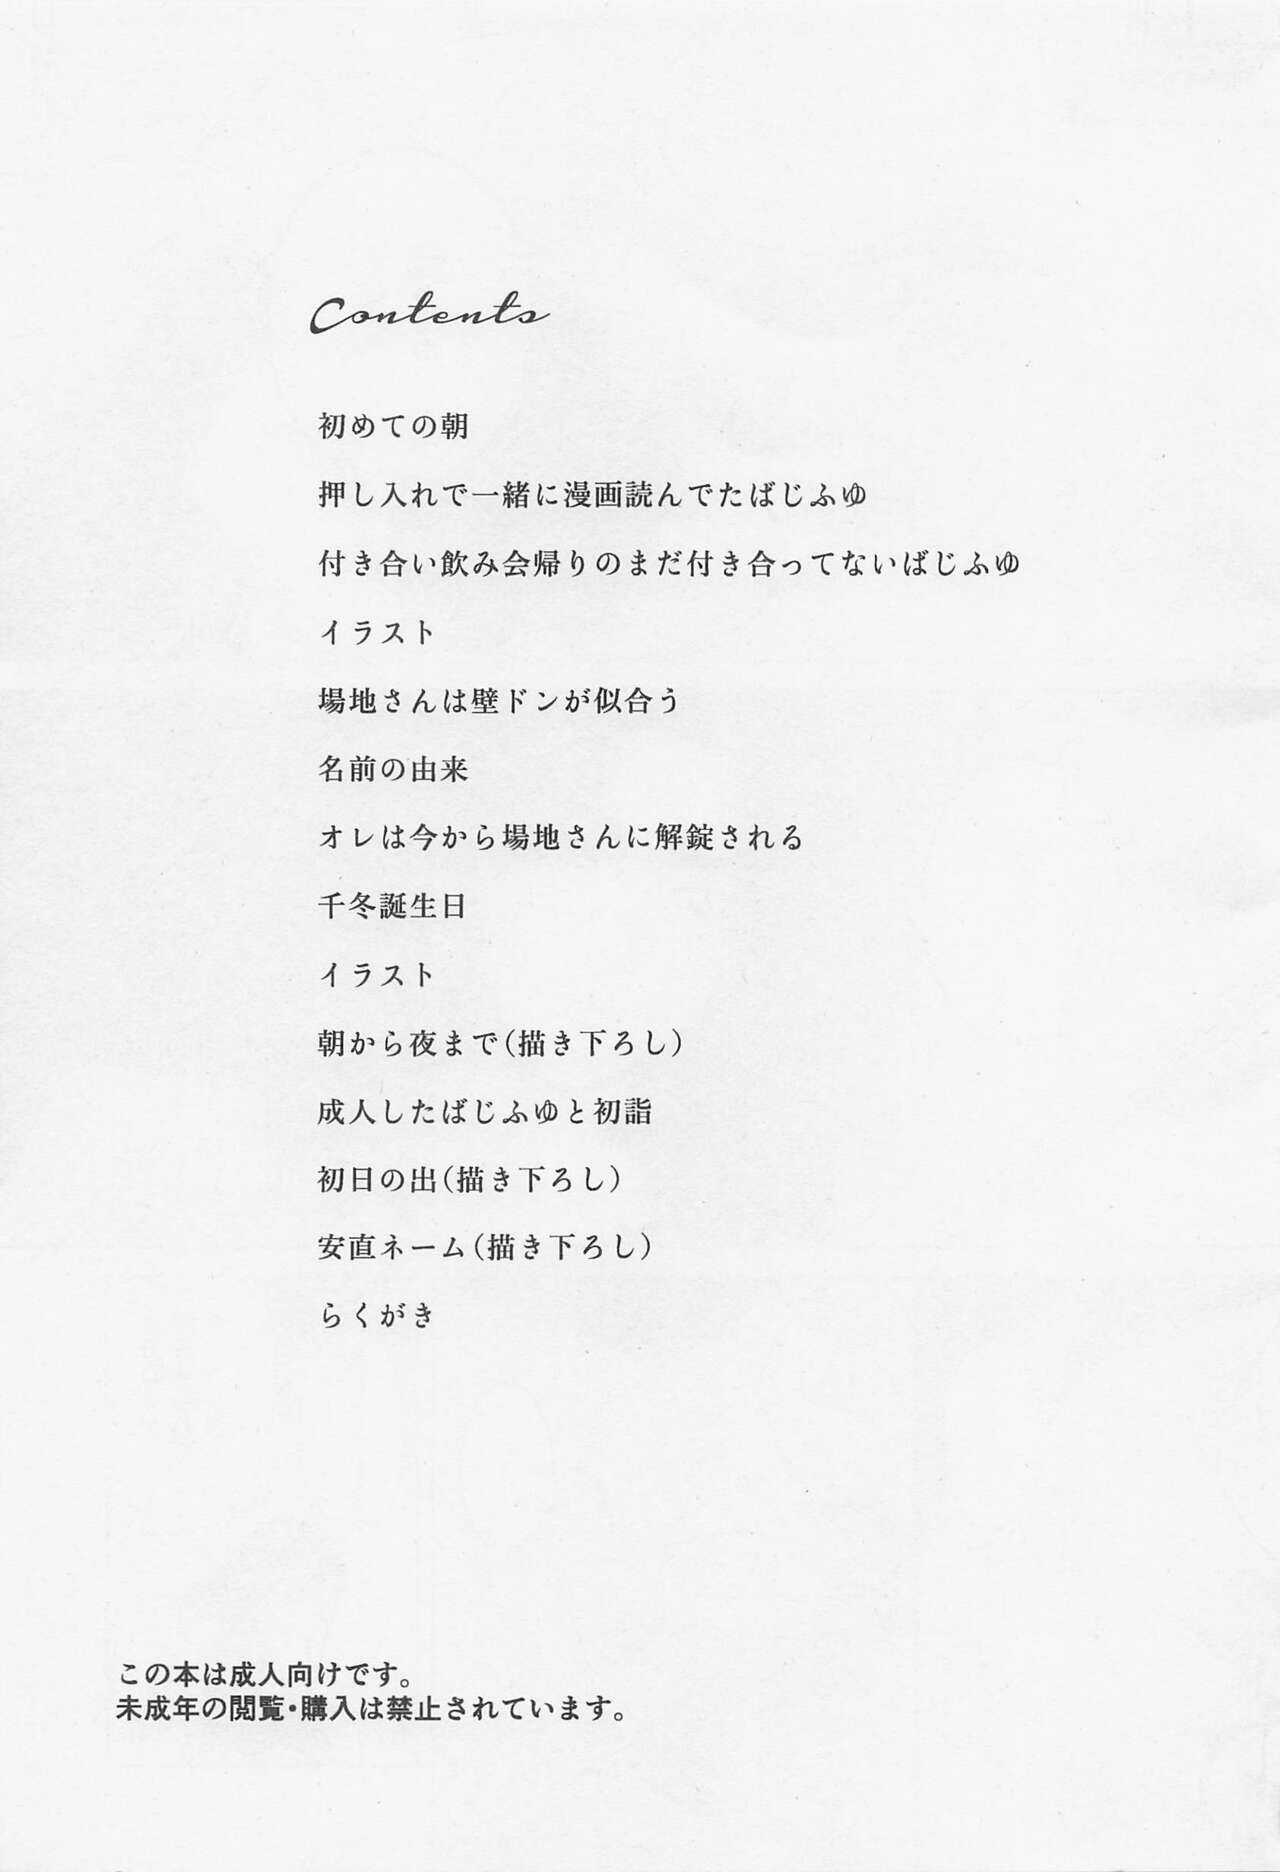 Contents
初めての朝
押し入れで一緒に漫画読んでたばじふゆ
付き合い飲み会帰りのまだ付き合ってないばじふゆ
イラスト
場地さんは壁ドンが似合う
名前の由来
オレは今から場地さんに解錠される
千冬誕生日
イラスト
朝から夜まで(描き下ろし)
成人したばじふゆと初詣
初日の出(描き下ろし)
安直ネーム(描き下ろし)
らくがき
この本は成人向けです。
未成年の閲覧・購入は禁止されています。